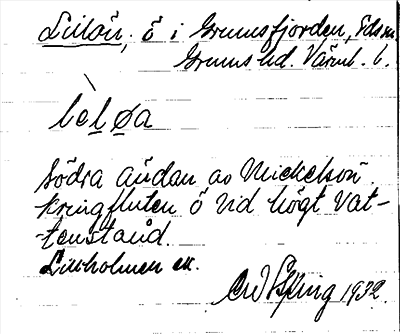 Lillön, ö i Grumsfjorden, Eds sn
Grums hd. Värml. l.
lèløa
södra ändan av Mickelsön.
kringfluten ö vid högt vat-
-tenstånd.
Lillholmen ek.
1932